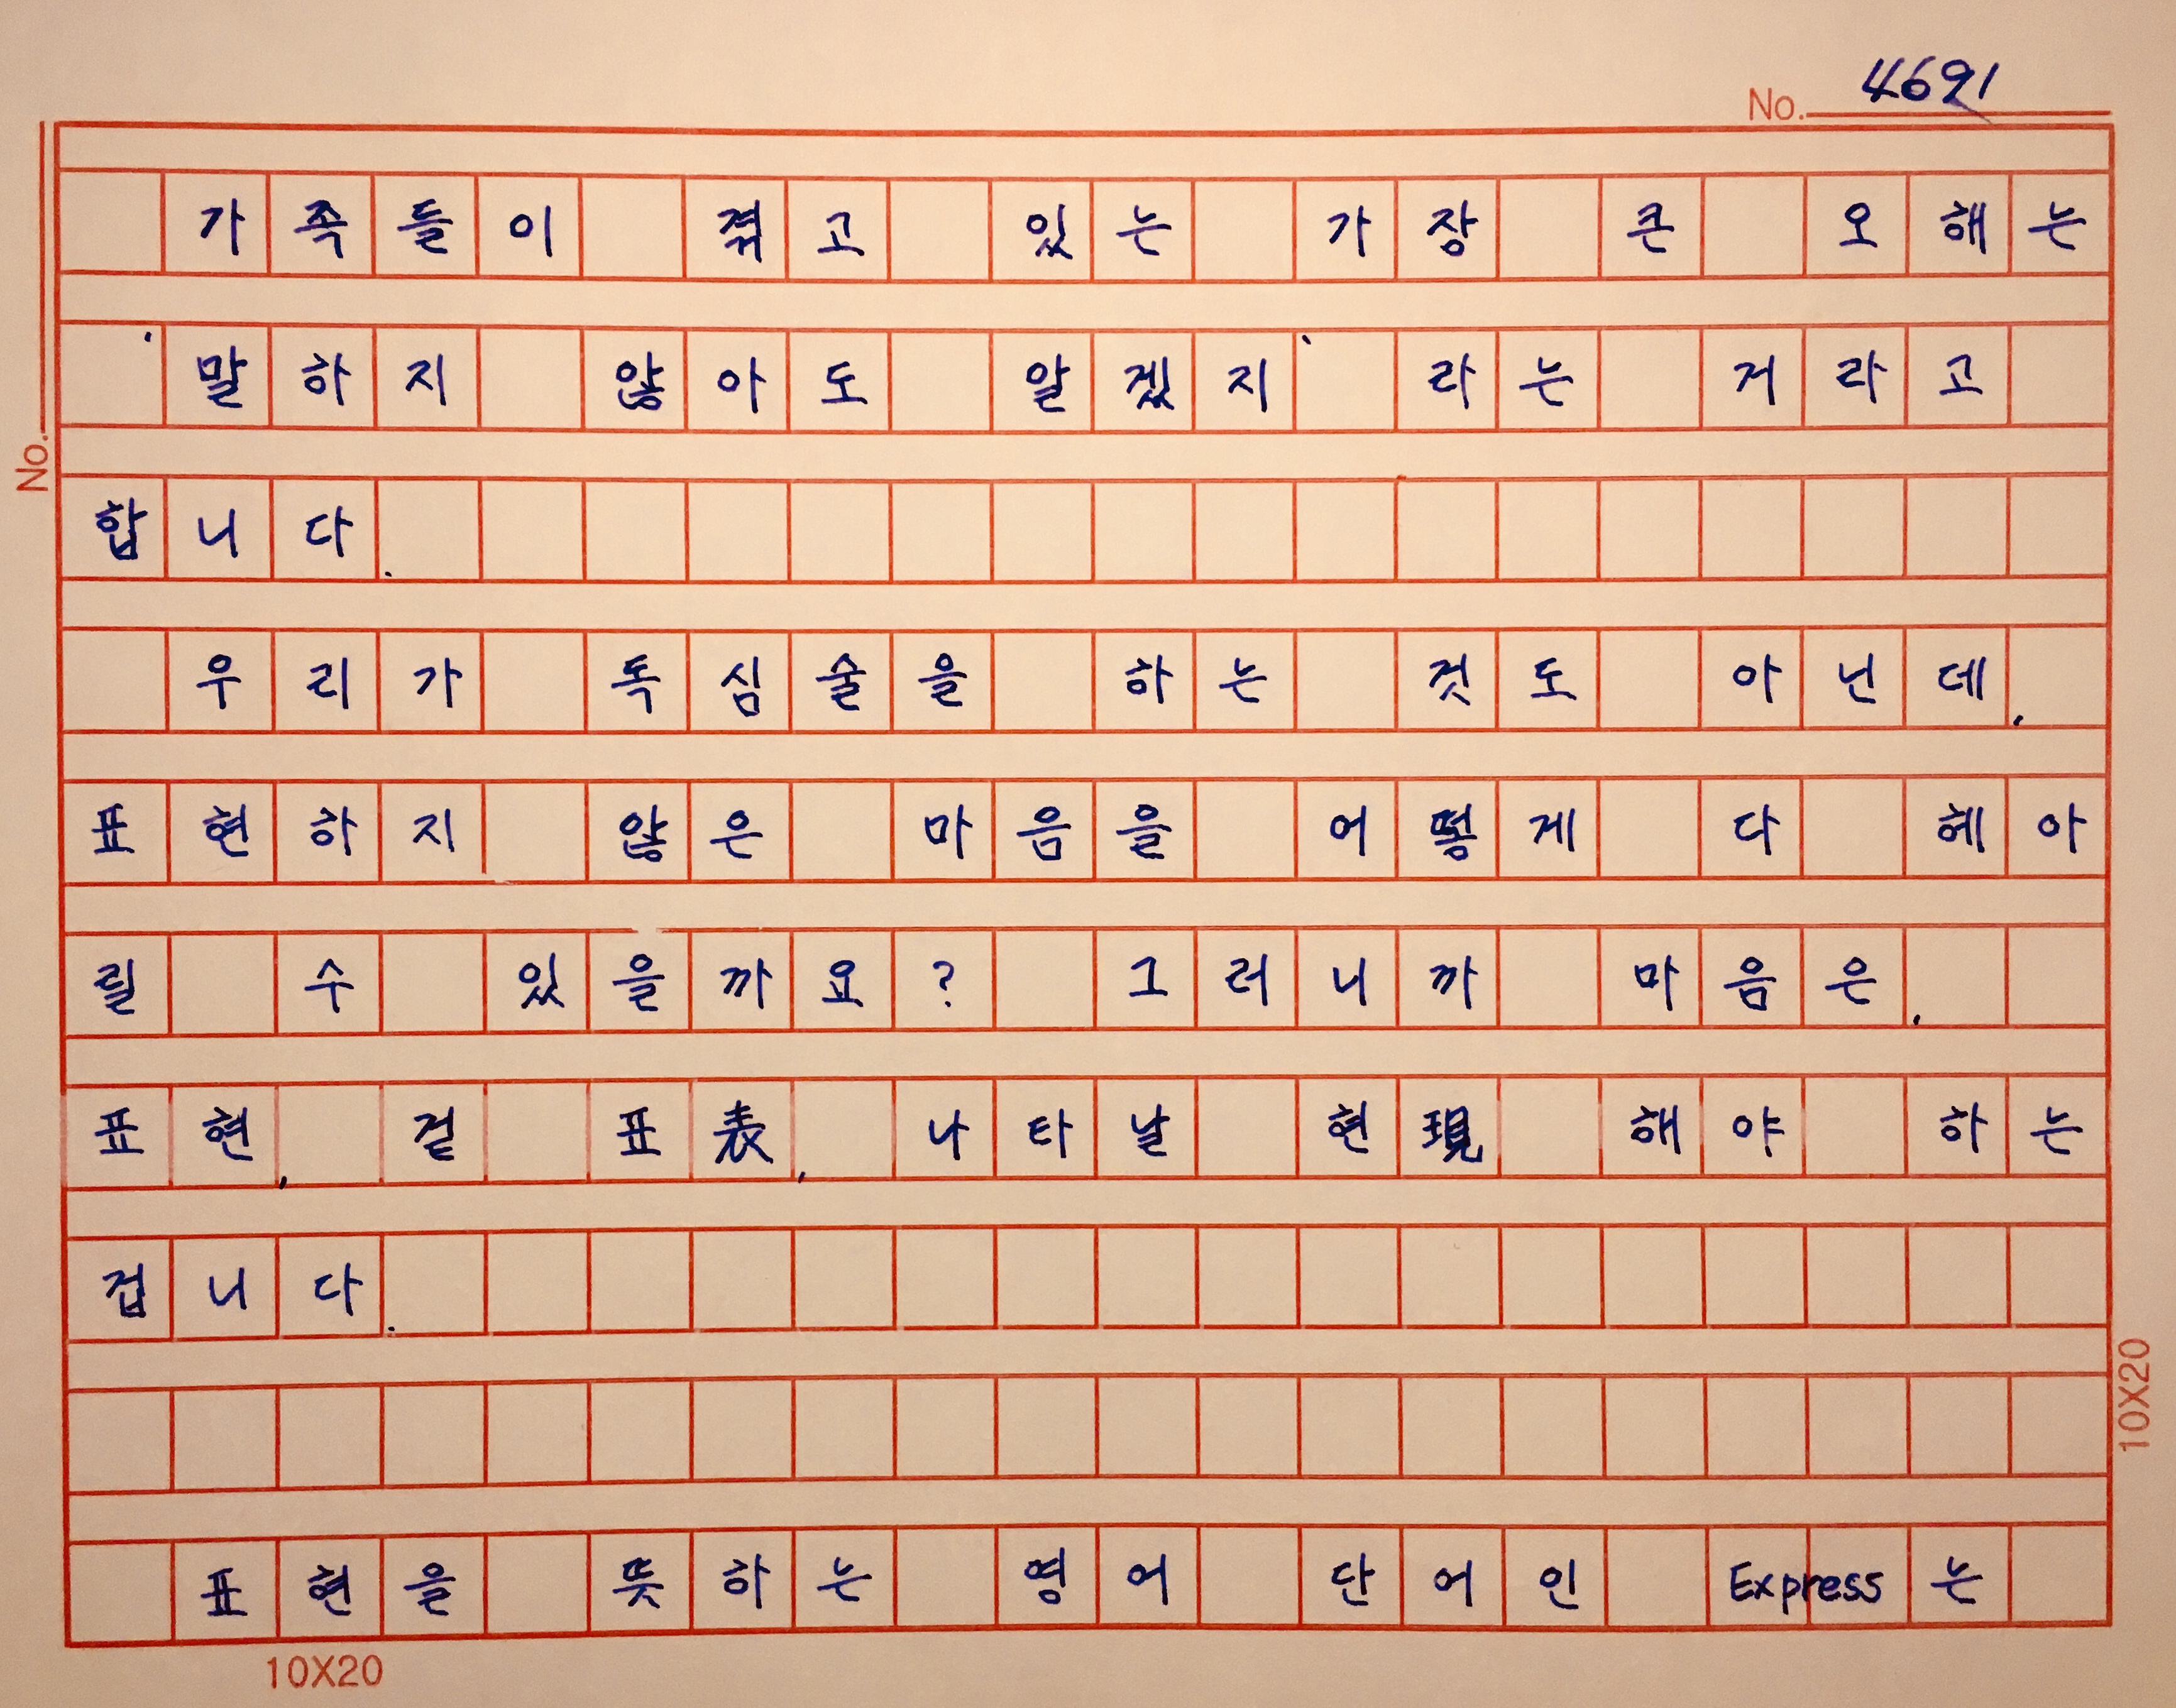 No. 4691
가족들이 겪고 있는 가장 큰 오해는
'말하지 않아도 알겠지' 라는 거라고
합니다.
No.
우리가 독심술을 하는 것도 아닌데,
표현하지 않은 마음을 어떻게 다 헤아
릴 수 있을까요? 그러니까 마음은,
표현, 겉 표表, 나타날 현現 해야 하는
겁니다.
표현을 뜻하는 영어 단어인 Express는
10X20
10X20